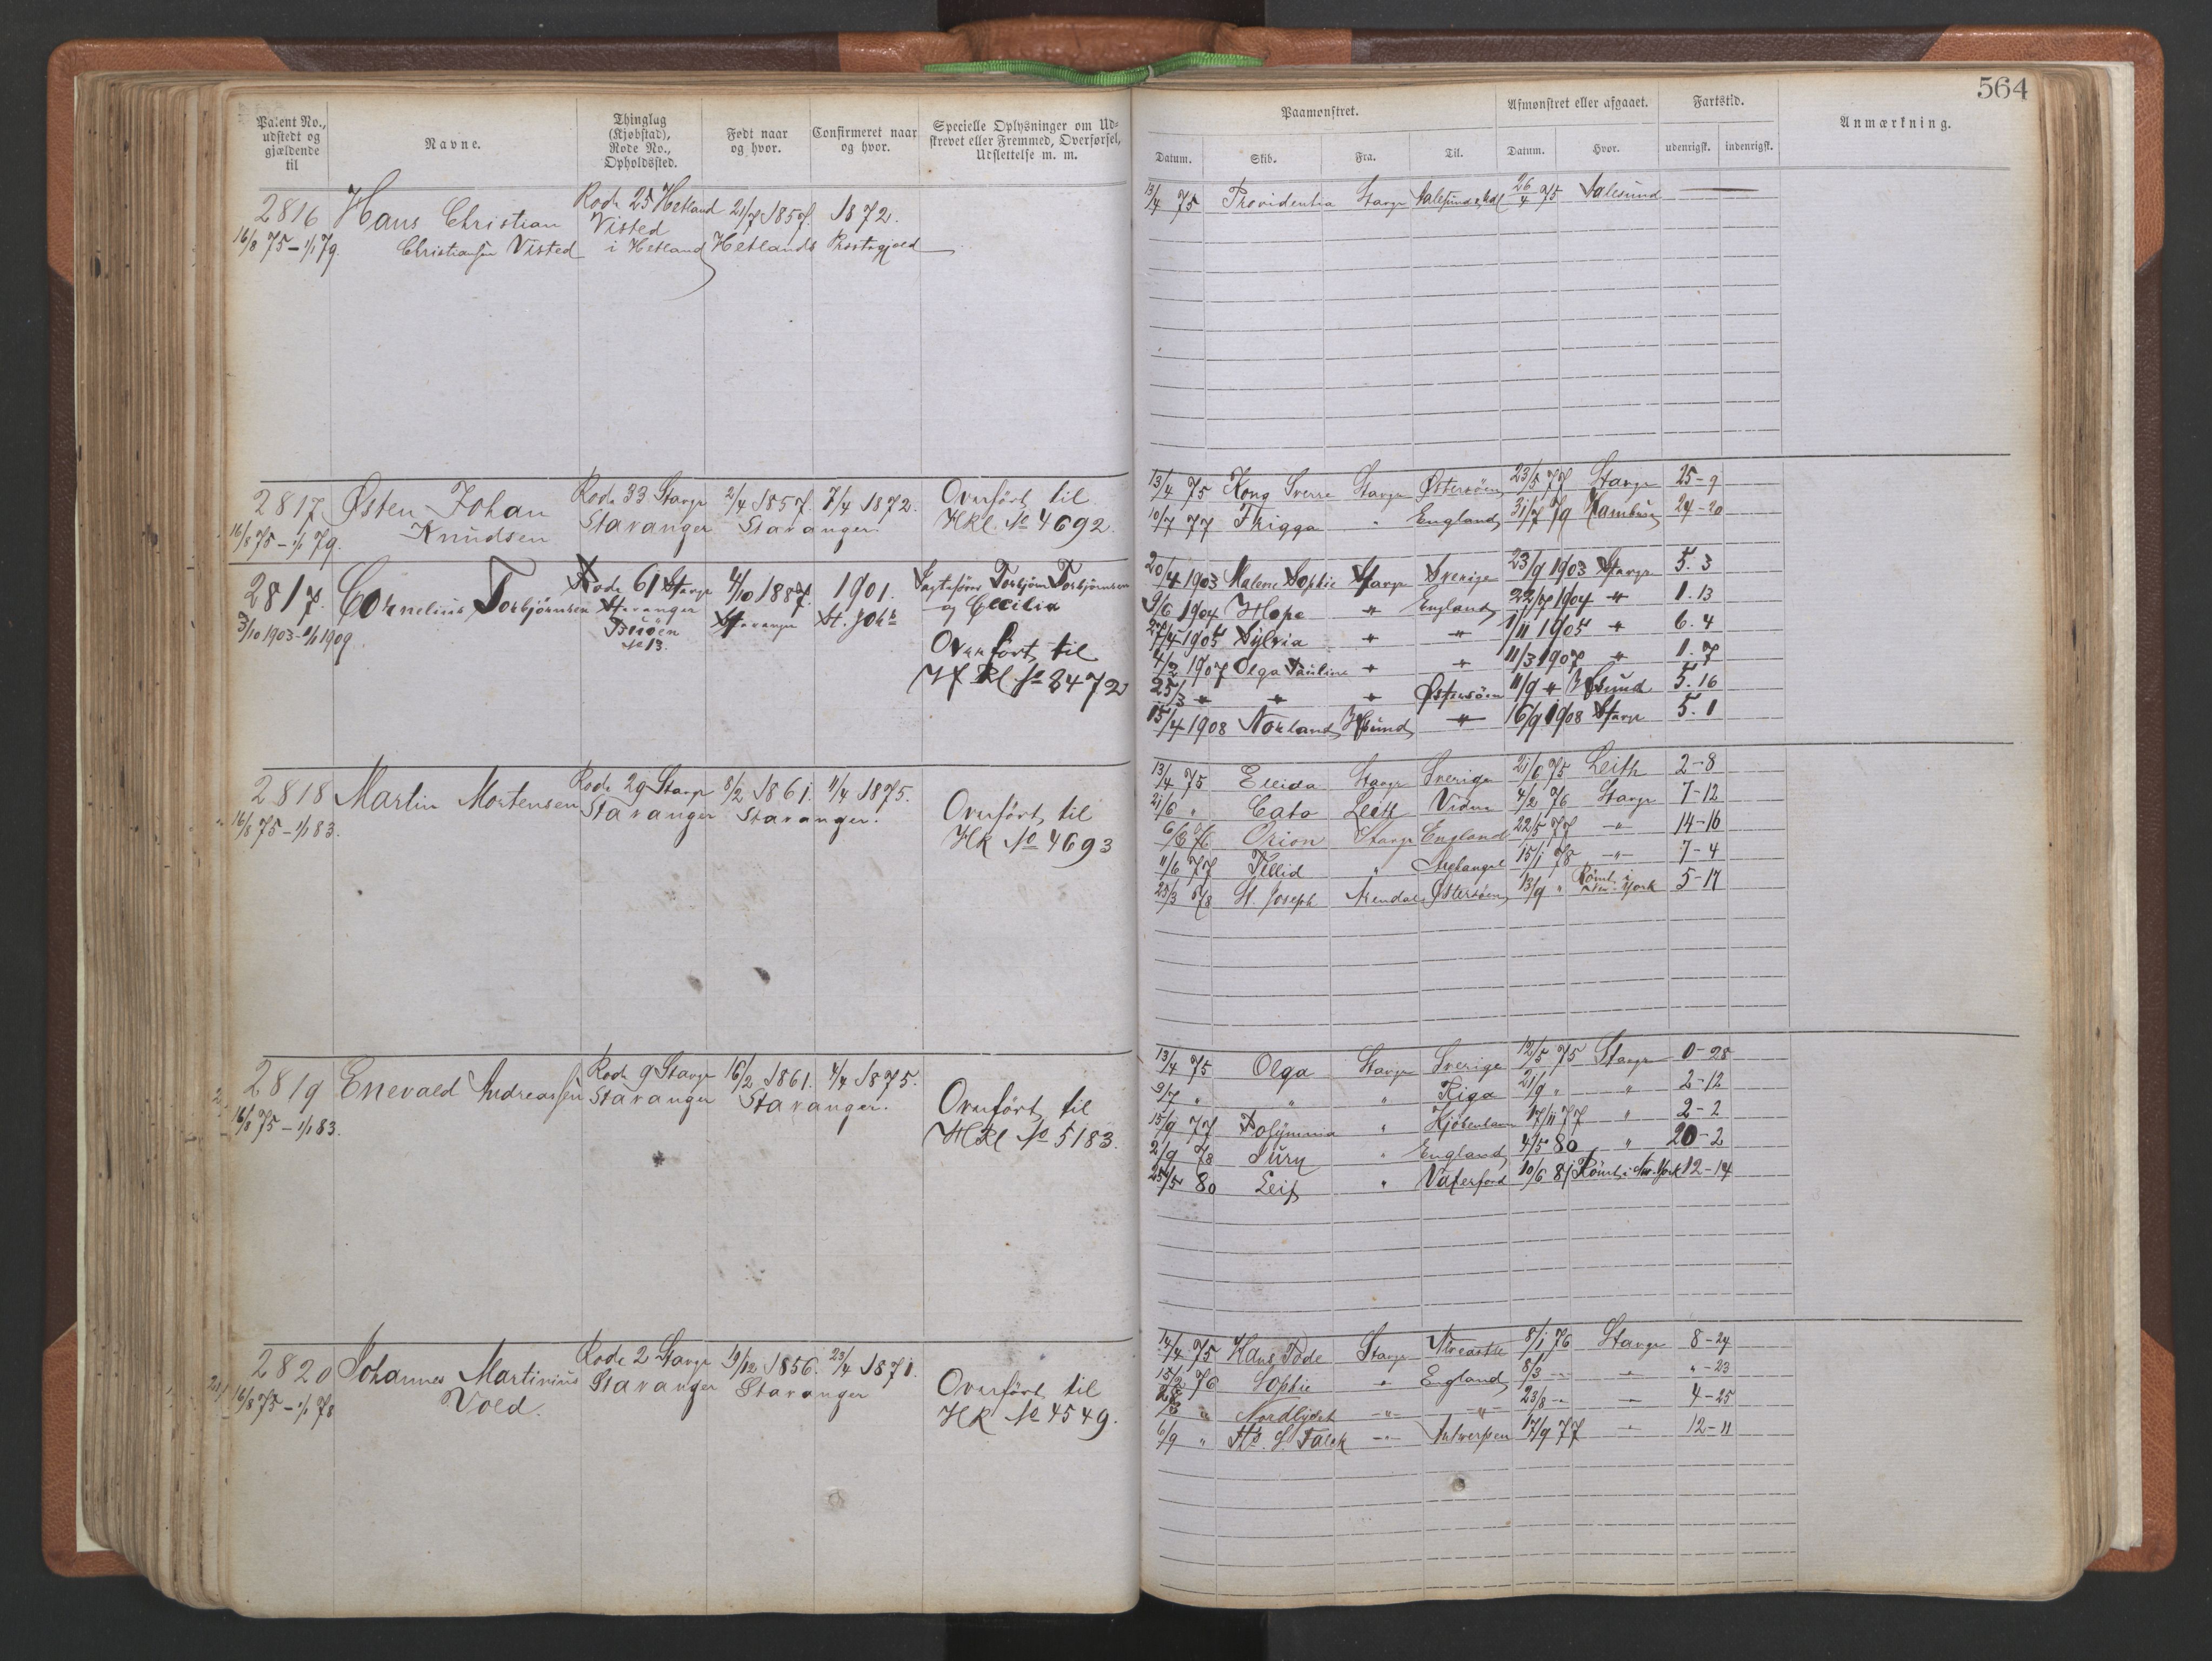 564
Patent No., udstedt og gjældende til
Navne.
Thinglag (Kjøbstad), Rode No., Opholdssted.
Født naar og hvor.
Confirmeret naar og hvor.
Specielle Oplysninger om Udskrevet eller Fremmed, Overførsel, Udslettelse m. m.
Paamønstret.
Afmønstret eller afgaaet.
Fartstid.
Anmærkning.
Datum. Skib. Fra. Til. Datum. Hvor. udenrigsk. indenrigsk.
2816 Hans Christian Rode 25 Hetland 21/7 1857. 1872.
16/8 75 - 1/1 79. Christiansen Visted Visted i Hetland Hetlands Præstegjeld
13/4 75 Providentia Stavgr Aalesund 26/4 75 Aalesund
2817 Østen Johan Rode 33 Stavgr 2/4 1857. 7/4 1872. Overført til
16/8 75 - 1/1 79. Knudsen Stavanger Stavanger. HRl No 4692.
13/4 75 Kong Sverre Stavgr Østersöen 23/5 77 Stavgr 25-9
10/7 77 Frigga " England 31/7 79 Hamburg 24-20
2817. Cornelius Torbjörnsen Rode 61 Stavgr 4/10 1887. 1901. Ægtefører Torbjörn Torbjörnsen
3/10 1903 - 1/1 1909. Stavanger Stavanger St. Joh. og Cecilia
No 13.
Overført til
Hf Rl No 8472
20/4 1903 Malene Sophie Stavgr Sverige 23/9 1903 Stavgr 5. 3
9/6 1904 Hope " England 22/7 1904 " 1. 13
27/4 1905 Sylvia " " 1/11 1905 " 6. 4
4/2 1907 Olga Pauline " " 11/3 1907 " 1. 7
25/3 " " " Østersöen 11/9 " Hfsund 5. 16
15/4 1908 Norland Hfsund " 16/9 1908 Stavgr 5. 1
2818 Martin Mortensen Rode 29 Stavgr 8/2 1861. 11/4 1875. Overført til
16/8 75 - 1/1 83. Stavanger Stavanger. HR No 4693
13/4 75 Elieda Stavgr Sverige 21/6 75 Leith 2-8
21/6 " Cato Leith 4/2 76 Stavgr 7-12
6/3 76 Orion Stavgr England 22/5 77 " 14-16
11/6 77 Fellid " Archangel 15/1 78 " 7-4
25/3 78 St. Joseph Arendal Østersöen 13/9 " Römt i New-York 5-17
2819 Enevald Andreassen Rode 9 Stavgr 16/2 1861. 4/4 1875. Overført til
16/8 75 - 1/1 83. Stavanger Stavanger. HRl No 5183.
13/4 75 Olga Stavgr Sverige 12/5 75 Stavgr 0-28
9/7 " " " Riga 21/9 " " 2-12
15/9 77 Polymnia " Kjöbenhavn 17/11 77 " 2-2
2/9 78 " England 4/5 80 " 20-2
25/5 80 Leif " Vaterford 10/6 81 Römt i New-York 12-14
2820 Johannes Martinius Rode 2 Stavgr 19/12 1856. 23/4 1871. Overført til
16/8 75 - 1/1 78 Vold. Stavanger Stavanger HR No 4549.
14/4 75 Hans Tode Stavgr Newcastle 8/1 76 Stavgr 8-24
15/2 76 Sophie " England 8/3 " " " -23
" Nordlyset " " 23/8 " " 4-25
6/9 " Falck " Antwerpen 17/9 77 " 12-11